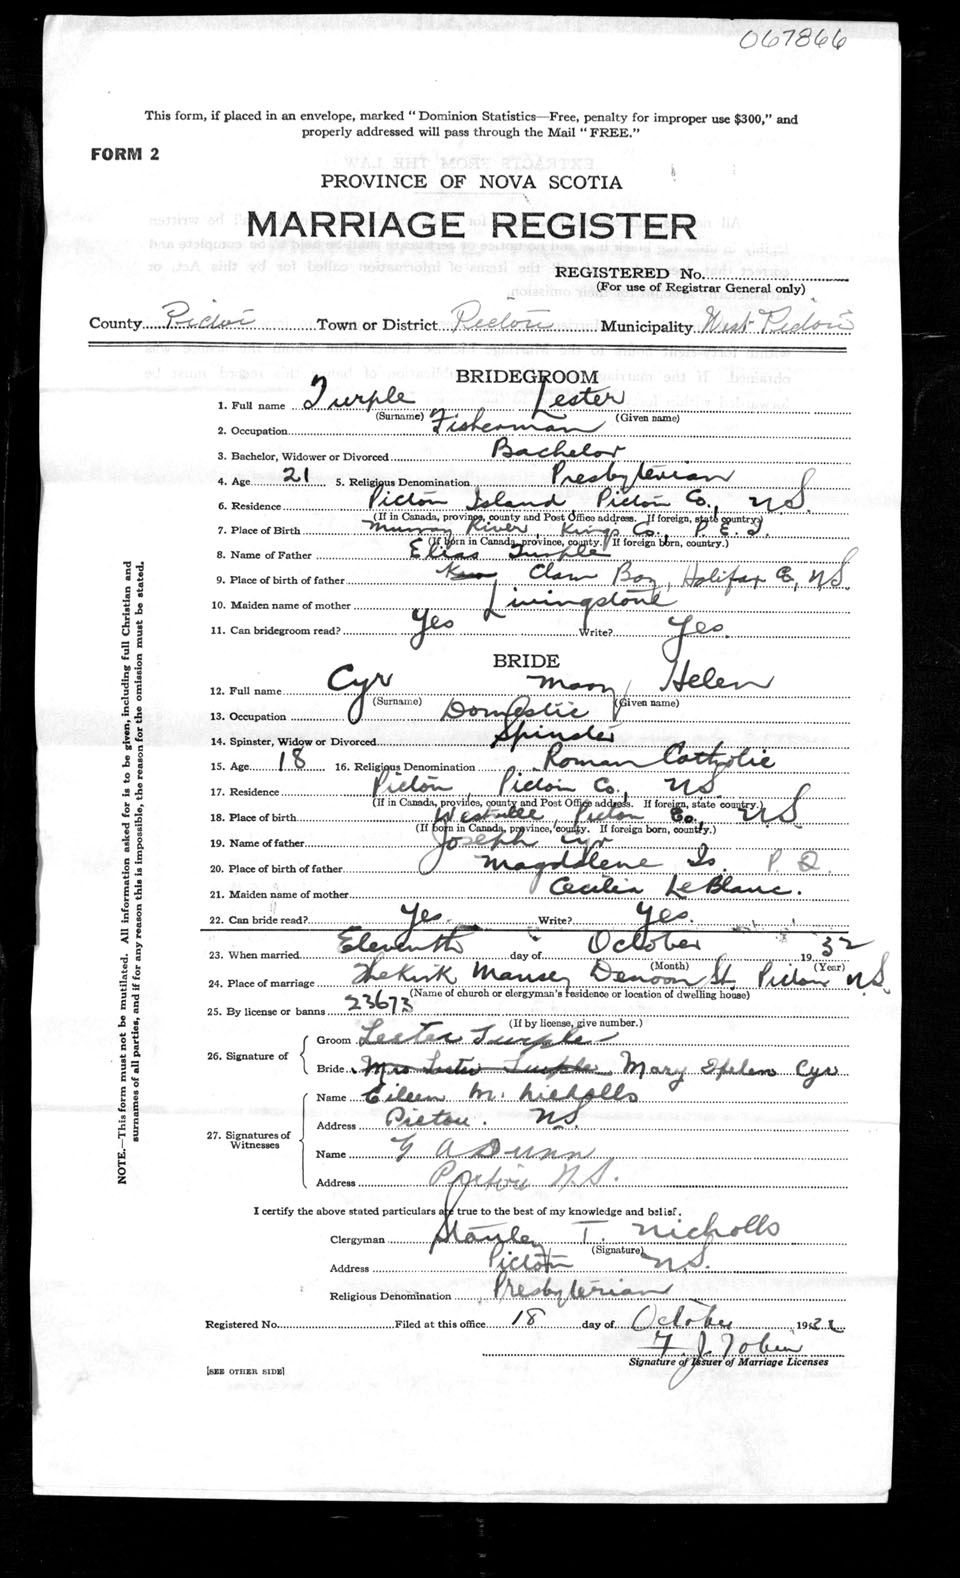 067866
This form, if placed in an envelope, marked "Dominion Statistics—Free, penalty for improper use $300," and
properly addressed will pass through the Mail "FREE."
FORM 2
PROVINCE OF NOVA SCOTIA
MARRIAGE REGISTER
REGISTERED No.
(For use of Registrar General only)
County Pictou Town or District Pictou Municipality West Pictou
BRIDEGROOM
1. Full name Turple Lester
(Surname) (Given name)
2. Occupation Fisherman
3. Bachelor, Widower or Divorced Bachelor
4. Age 21 5. Religious Denomination Presbyterian
6. Residence Pictou Island Pictou Co., N.S.
(If in Canada, province, county and Post Office address. If foreign, state country)
7. Place of Birth Murray River, Kings Co., P.E.I.
(If born in Canada, province, county. If foreign born, country.)
8. Name of Father Elias Turple
9. Place of birth of father Clam Bay, Halifax Co., N.S.
10. Maiden name of mother Livingstone
11. Can bridegroom read? Yes Write? Yes.
BRIDE
12. Full name Cyr Mary Helen
(Surname) (Given name)
13. Occupation Domestic
14. Spinster, Widow or Divorced Spinster
15. Age 18 16. Religious Denomination Roman Catholic
17. Residence Pictou, Pictou Co., N.S.
(If in Canada, province, county and Post Office address. If foreign, state country.)
18. Place of birth Westville, Pictou Co., N.S.
(If born in Canada, province, county. If foreign born, country.)
19. Name of father Joseph Cyr
20. Place of birth of father Magdalene Is. P.Q.
21. Maiden name of mother Cecilia LeBlanc.
22. Can bride read? Yes. Write? Yes.
23. When married Eleventh day of October 1932
(Month) (Year)
24. Place of marriage The Kirk Manse, Denoon St. Pictou N.S.
(Name of church or clergyman's residence or location of dwelling house)
25. By license or banns 23673
(If by license, give number.)
26. Signature of
Groom Lester Turple
Bride Mrs Lester Turple Mary Helen Cyr
27. Signatures of Witnesses
Name Eileen M. Nicholls
Address Pictou. N.S.
Name G A Dunn
Address Pictou N.S.
I certify the above stated particulars are true to the best of my knowledge and belief.
Clergyman Stanley T. Nicholls
(Signature)
Address Pictou N.S.
Religious Denomination Presbyterian
Registered No. Filed at this office 18 day of October 1932
F. J. Tobin
Signature of Issuer of Marriage Licenses
[SEE OTHER SIDE]
NOTE.—This form must not be mutilated. All information asked for is to be given, including full Christian and
surnames of all parties, and if for any reason this is impossible, the reason for the omission must be stated.